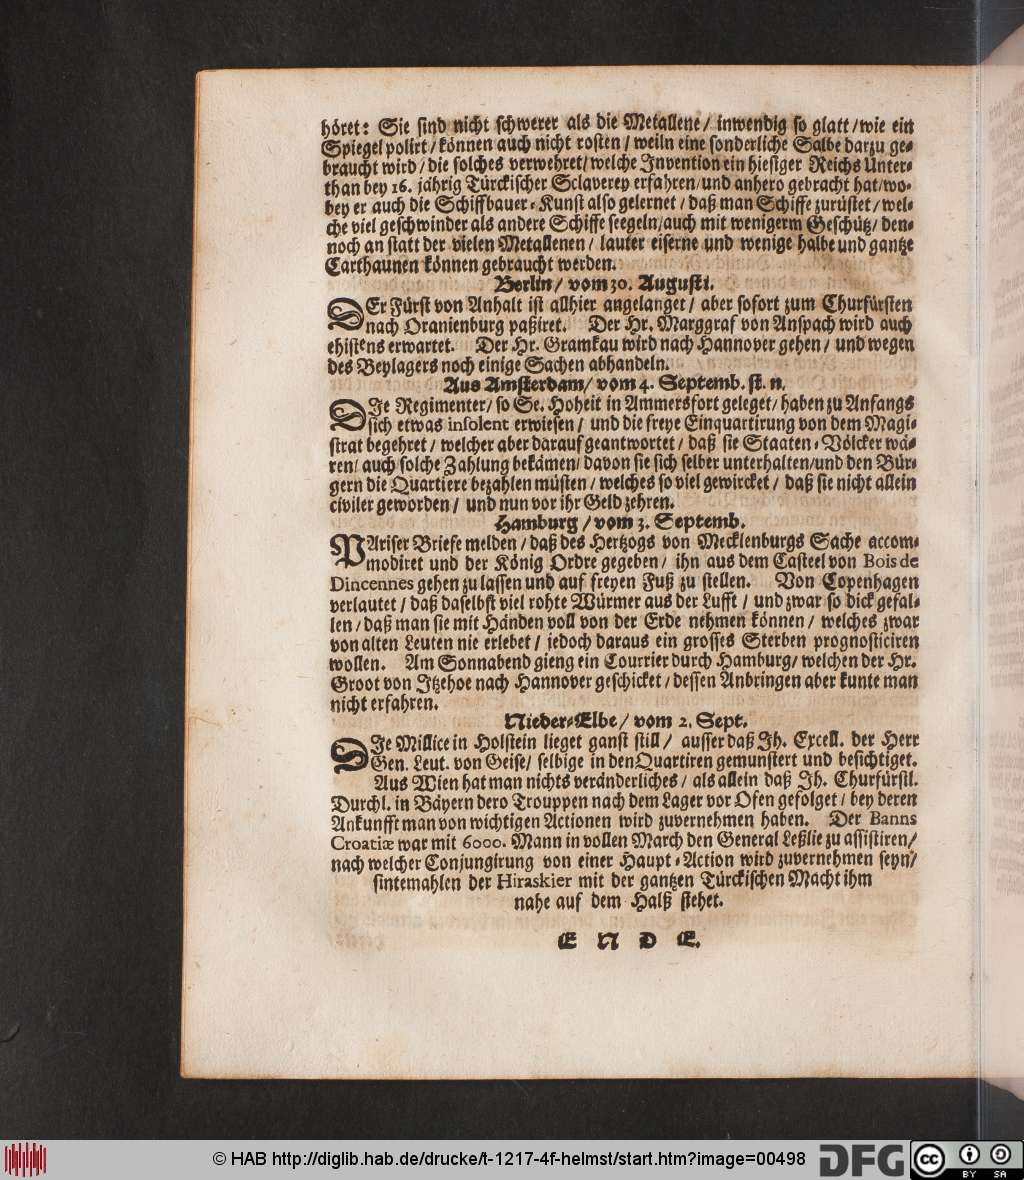 höret: Sie sind nicht schwerer als die Metallene/ inwendig so glatt/wie ein
Spiegel polirt/ können auch nicht rosten/ weiln eine sonderliche Salbe darzu ge-
braucht wird/ die solches verwehret/ welche Invention ein hiesiger Reichs Unter-
than bey 16. jährig Türckischer Sclaverey erfahren/und anhero gebracht hat/wo-
bey er auch die Schiffbauer-Kunst also gelernet/ daß man Schiffe zurüstet/ wel-
che viel geschwinder als andere Schiffe seegeln/auch mit wenigerm Geschütz/ den-
noch an statt der vielen Metallenen/ lauter eiserne und wenige halbe und gantze
Carthaunen können gebraucht werden.
Berlin/ vom 30. Augusti.
DEr Fürst von Anhalt ist allhier angelanget/ aber sofort zum Churfürsten
nach Oranienburg paßiret. Der Hr. Marggraf von Anspach wird auch
ehistens erwartet. Der Hr. Gramkau wird nach Hannover gehen/ und wegen
des Beylagers noch einige Sachen abhandeln.
Aus Amsterdam/ vom 4. Septemb. st. n.
DIe Regimenter/ so Se. Hoheit in Ammersfort geleget/ haben zu Anfangs
sich etwas insolent erwiesen/ und die freye Einquartirung von dem Magi-
strat begehret/ welcher aber darauf geantwortet/ daß sie Staaten-Völcker wä-
ren/ auch solche Zahlung bekämen/ davon sie sich selber unterhalten/und den Bür-
gern die Quartiere bezahlen müsten/ welches so viel gewircket/ daß sie nicht allein
civiler geworden/ und nun vor ihr Geld zehren.
Hamburg/ vom 3. Septemb.
PAriser Briefe melden/ daß des Hertzogs von Mecklenburgs Sache accom-
modiret und der König Ordre gegeben/ ihn aus dem Casteel von Bois de
Dincennes gehen zu lassen und auf freyen Fuß zu stellen. Von Copenhagen
verlautet/ daß daselbst viel rohte Würmer aus der Lufft/ und zwar so dick gefal-
len/ daß man sie mit Händen voll von der Erde nehmen können/ welches zwar
von alten Leuten nie erlebet/ jedoch daraus ein grosses Sterben prognosticiren
wollen. Am Sonnabend gieng ein Courrier durch Hamburg/ welchen der Hr.
Groot von Itzehoe nach Hannover geschicket/ dessen Anbringen aber kunte man
nicht erfahren.
Nieder-Elbe/ vom 2. Sept.
DIe Millice in Holstein lieget ganst still/ ausser daß Ih. Excell. der Herr
Gen. Leut. von Geise/ selbige in den Quartiren gemunstert und besichtiget.
Aus Wien hat man nichts veränderliches/ als allein daß Ih. Churfürstl.
Durchl. in Bäyern dero Trouppen nach dem Lager vor Ofen gefolget/ bey deren
Ankunfft man von wichtigen Actionen wird zuvernehmen haben. Der Banns
Croatiæ war mit 6000. Mann in vollen March den General Leßlie zu assistiren/
nach welcher Conjungirung von einer Haupt-Action wird zuvernehmen seyn/
sintemahlen der Hiraskier mit der gantzen Türckischen Macht ihm
nahe auf dem Halß stehet.
E N D E.
© HAB http://diglib.hab.de/drucke/t-1217-4f-helmst/start.htm?image=00498 DFG cc BY SA